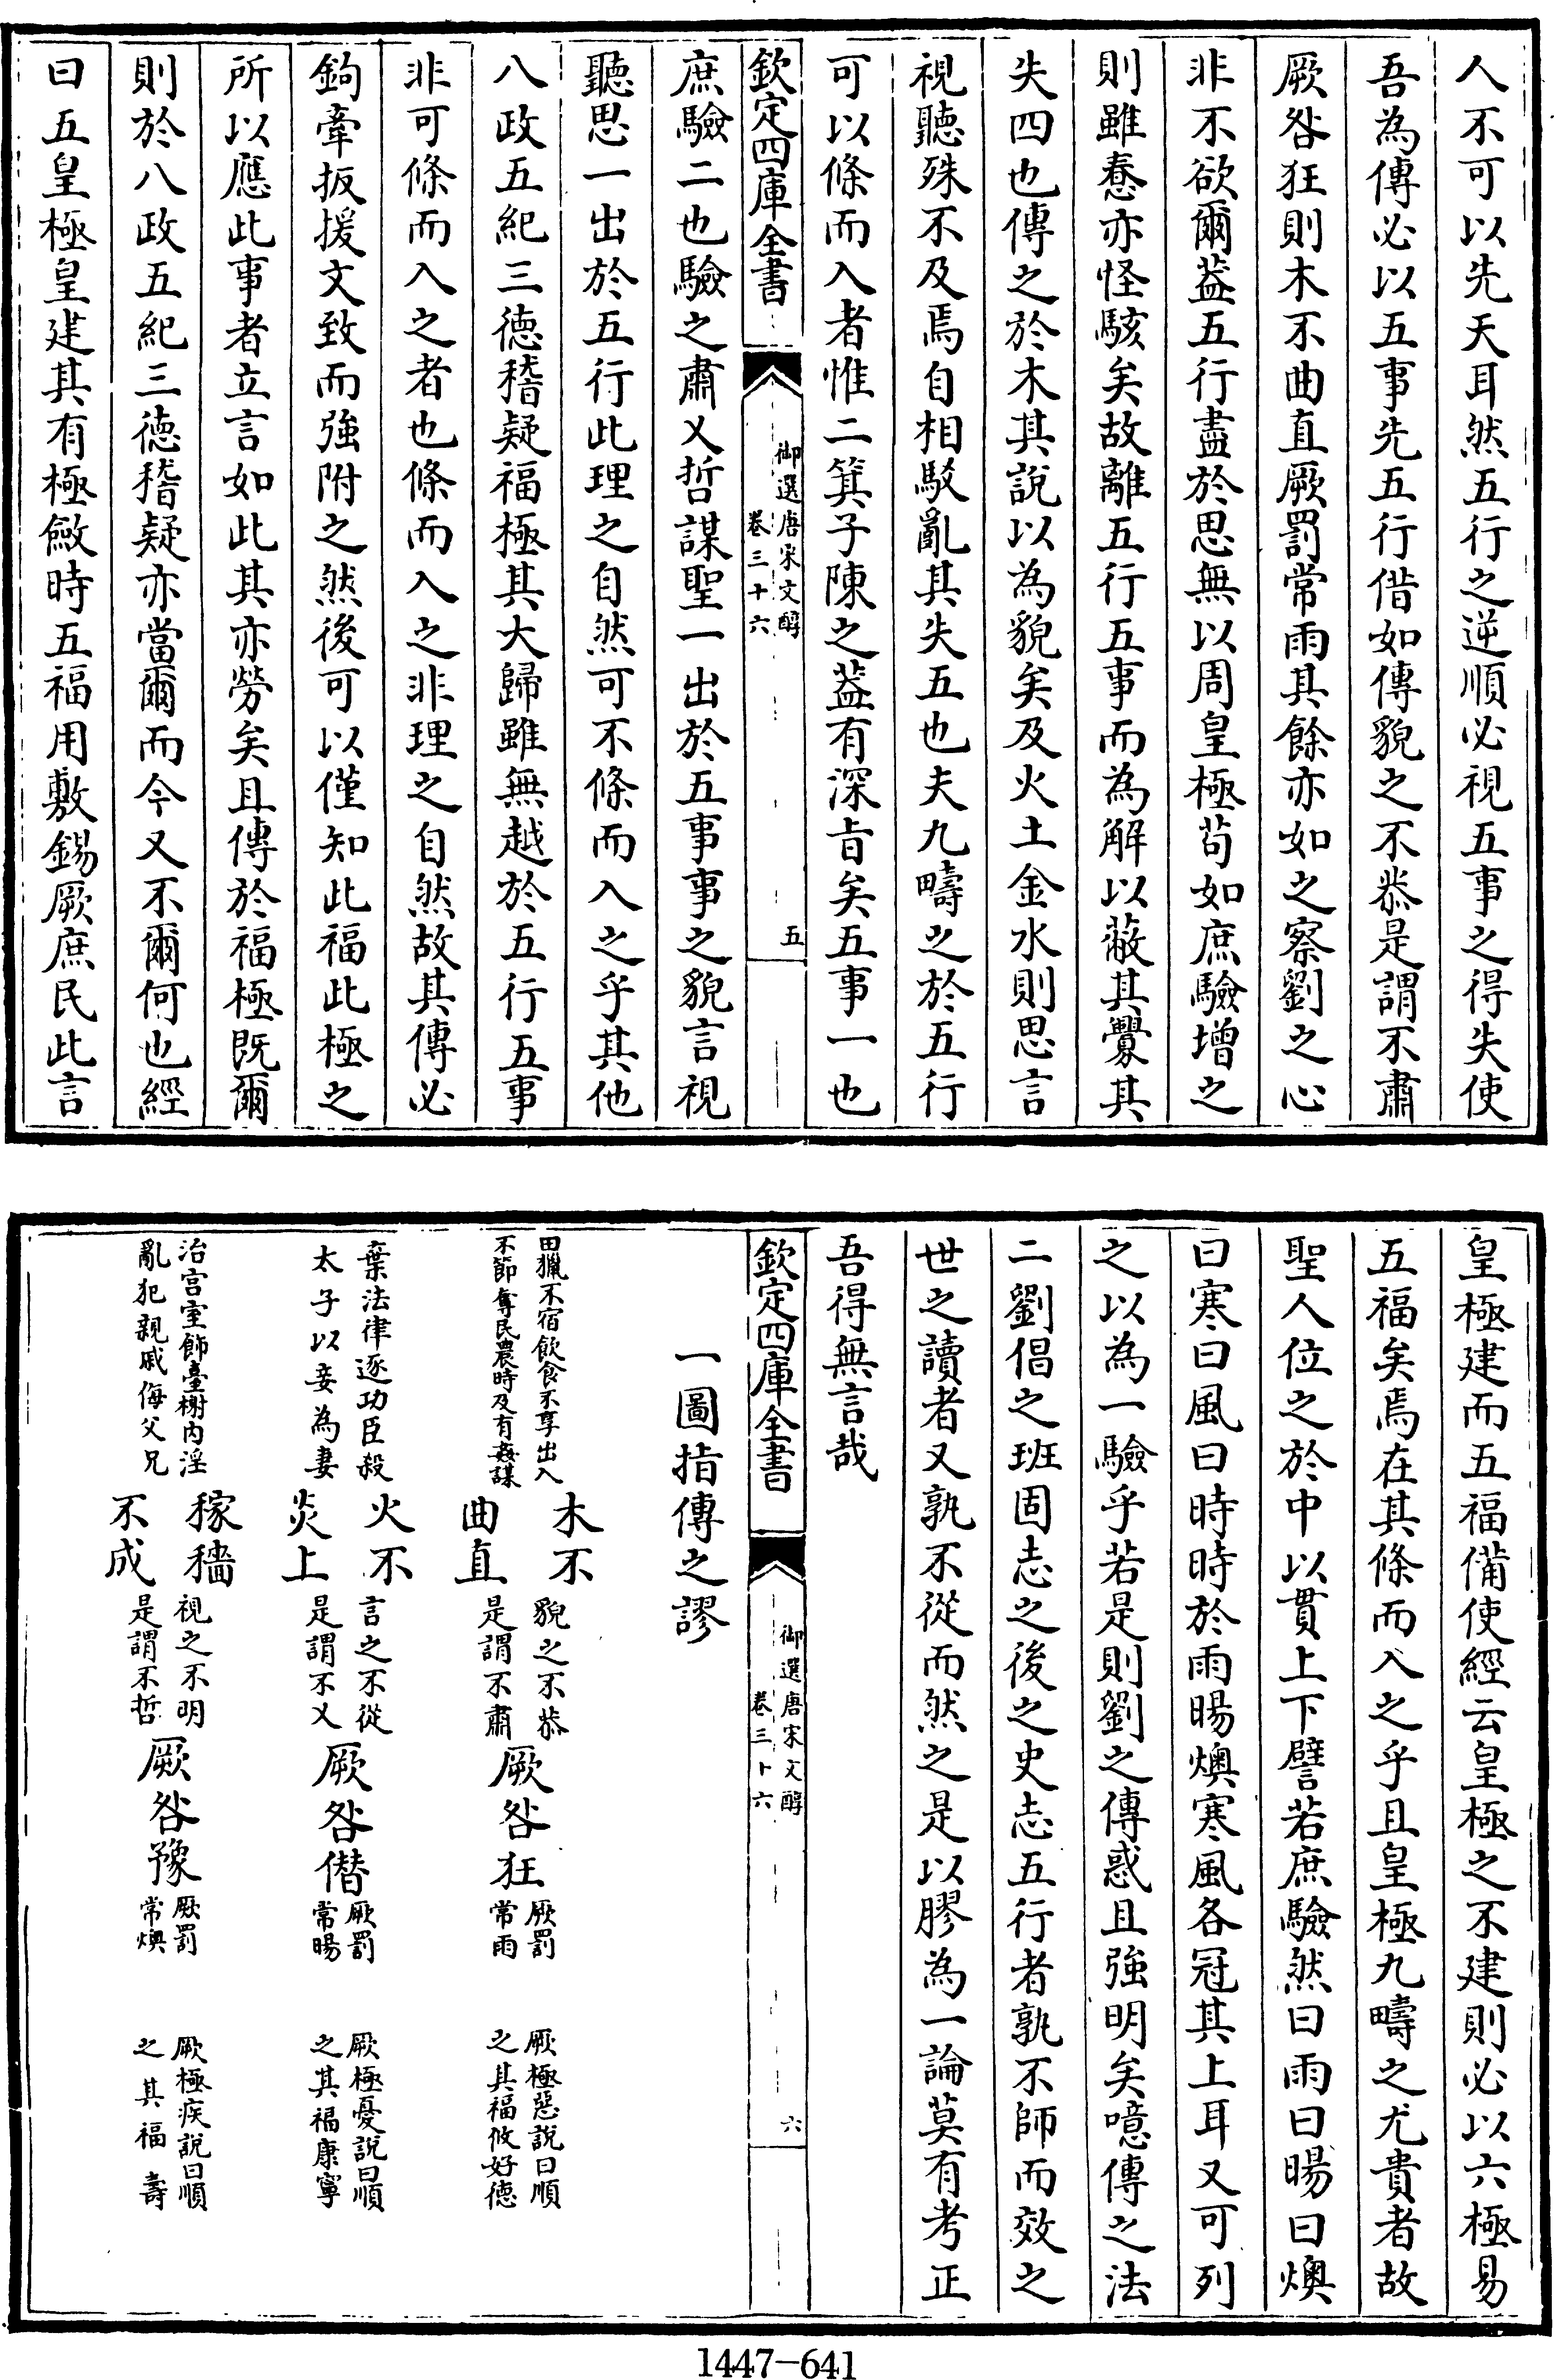 人不可以先天耳然五行之逆順必視五事之得失使
吾為傳必以五事先五行借如傳貌之不恭是謂不肅
厥咎狂則木不曲直厥罰常雨其餘亦如之察劉之心
非不欲爾葢五行盡於思無以周皇極苟如庶驗增之
則雖惷亦怪駭矣故離五行五事而為解以蔽其釁其
失四也傳之於木其說以為貌矣及火土金水則思言
視聽殊不及焉自相駁亂其失五也夫九疇之於五行
可以條而入者惟二箕子陳之葢有深旨矣五事一也
欽定四庫全書
御選唐宋文醇
卷三十六
五
庶驗二也驗之肅乂哲謀聖一出於五事事之貌言視
聽思一出於五行此理之自然可不條而入之乎其他
八政五紀三德稽疑福極其大歸雖無越於五行五事
非可條而入之者也條而入之非理之自然故其傳必
鉤牽扳援文致而強附之然後可以僅知此福此極之
所以應此事者立言如此其亦勞矣且傳於福極既爾
則於八政五紀三德稽疑亦當爾而今又不爾何也經
曰五皇極皇建其有極斂時五福用敷錫厥庶民此言
皇極建而五福備使經云皇極之不建則必以六極易
五福矣焉在其條而入之乎且皇極九疇之尤貴者故
聖人位之於中以貫上下譬若庶驗然曰雨曰暘曰燠
曰寒曰風曰時時於雨暘燠寒風各冠其上耳又可列
之以為一驗乎若是則劉之傳惑且強明矣噫傳之法
二劉倡之班固志之後之史志五行者孰不師而效之
世之讀者又孰不從而然之是以膠為一論莫有考正
吾得無言哉
欽定四庫全書
御選唐宋文醇
卷三十六
六
一圖指傳之謬
田獵不宿飲食不享出入
不節奪民農時及有姦謀
木不
曲直
貌之不恭
是謂不肅
厥咎狂
厥罰
常雨
厥極惡說曰順
之其福攸好德
棄法律逐功臣殺
太子以妾為妻
火不
炎上
言之不從
是謂不乂
厥咎僭
厥罰
常暘
厥極憂說曰順
之其福康寧
治宮室飾臺榭内淫
亂犯親戚侮父兄
稼穡
不成
視之不明
是謂不哲
厥咎豫
厥罰
常燠
厥極疾說曰順
之其福壽
1447-641